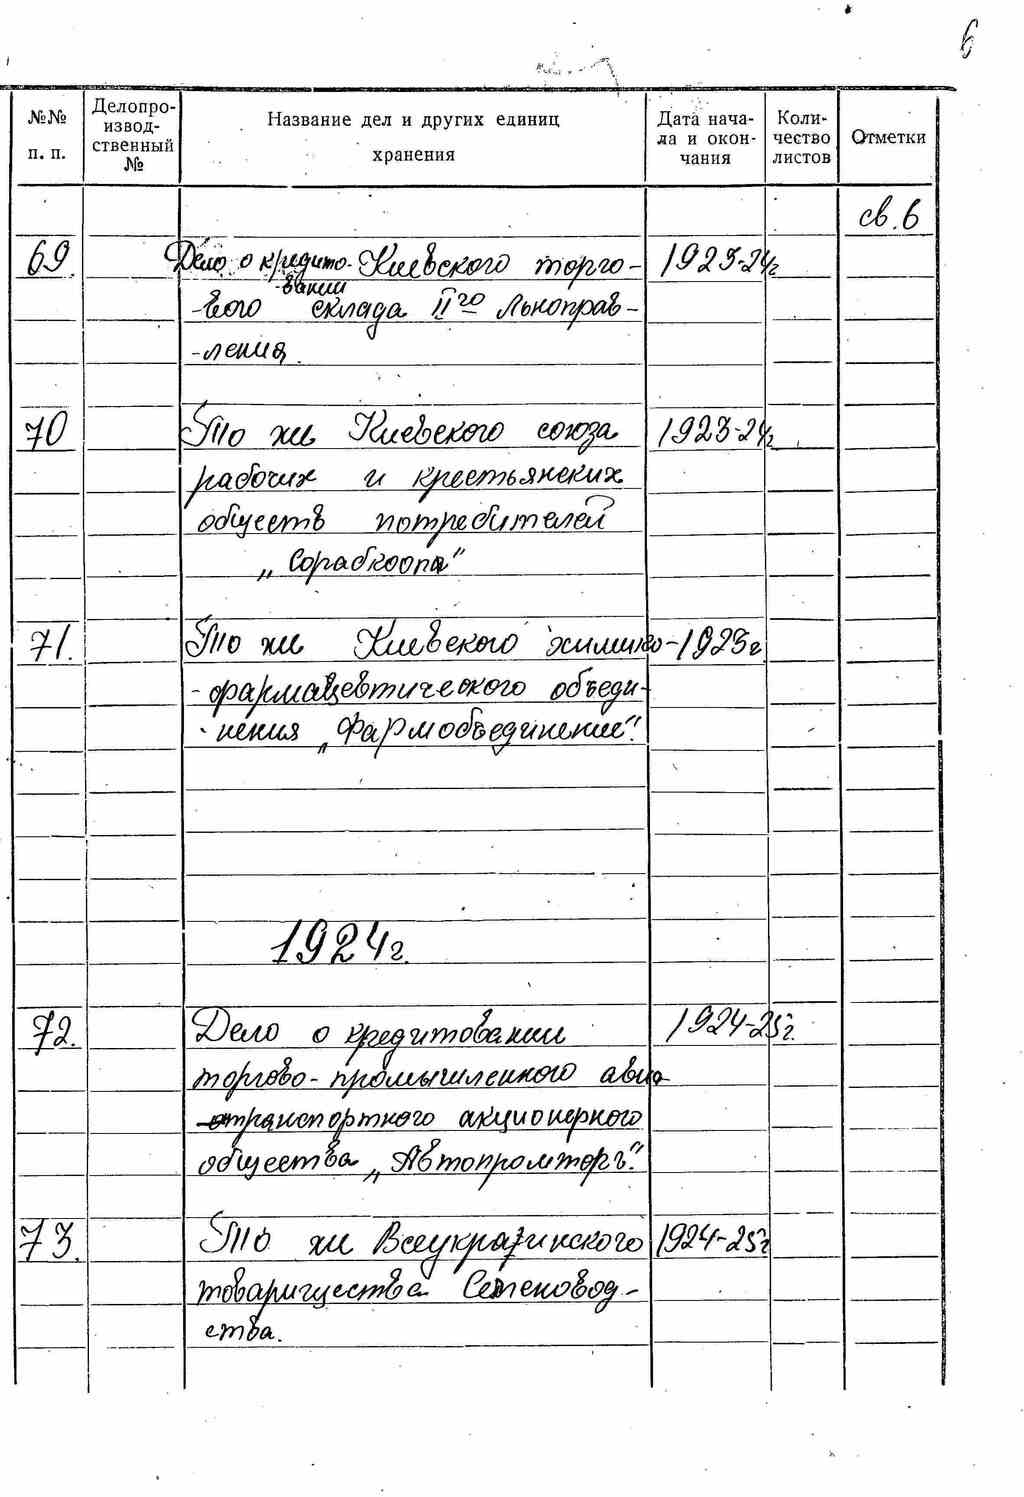 6
№№ п. п. Делопро- извод- ственный № Название дел и других единиц хранения Дата нача- ла и окон- чания Коли- чество листов Отметки
св. 6
69. Дело о кредито- Киевского торго- 1923-24г
-вании
-вого склада II го Льноправ-
-ления.
70 То же Киевского союза 1923-24г.
рабочих и крестьянских
обществ потребителей
„Сорабкоопа"
71. То же Киевского химико- 1923г.
-фармацевтического объеди-
-нения „Фармобъединение".
1924г.
72. Дело о кредитовании 1924-25г.
торгово-промышленного авто
транспортного акционерного
общества „Автопромторг".
73. То же Всеукраинского 1924-25г
товарищества Семеновод-
ства.